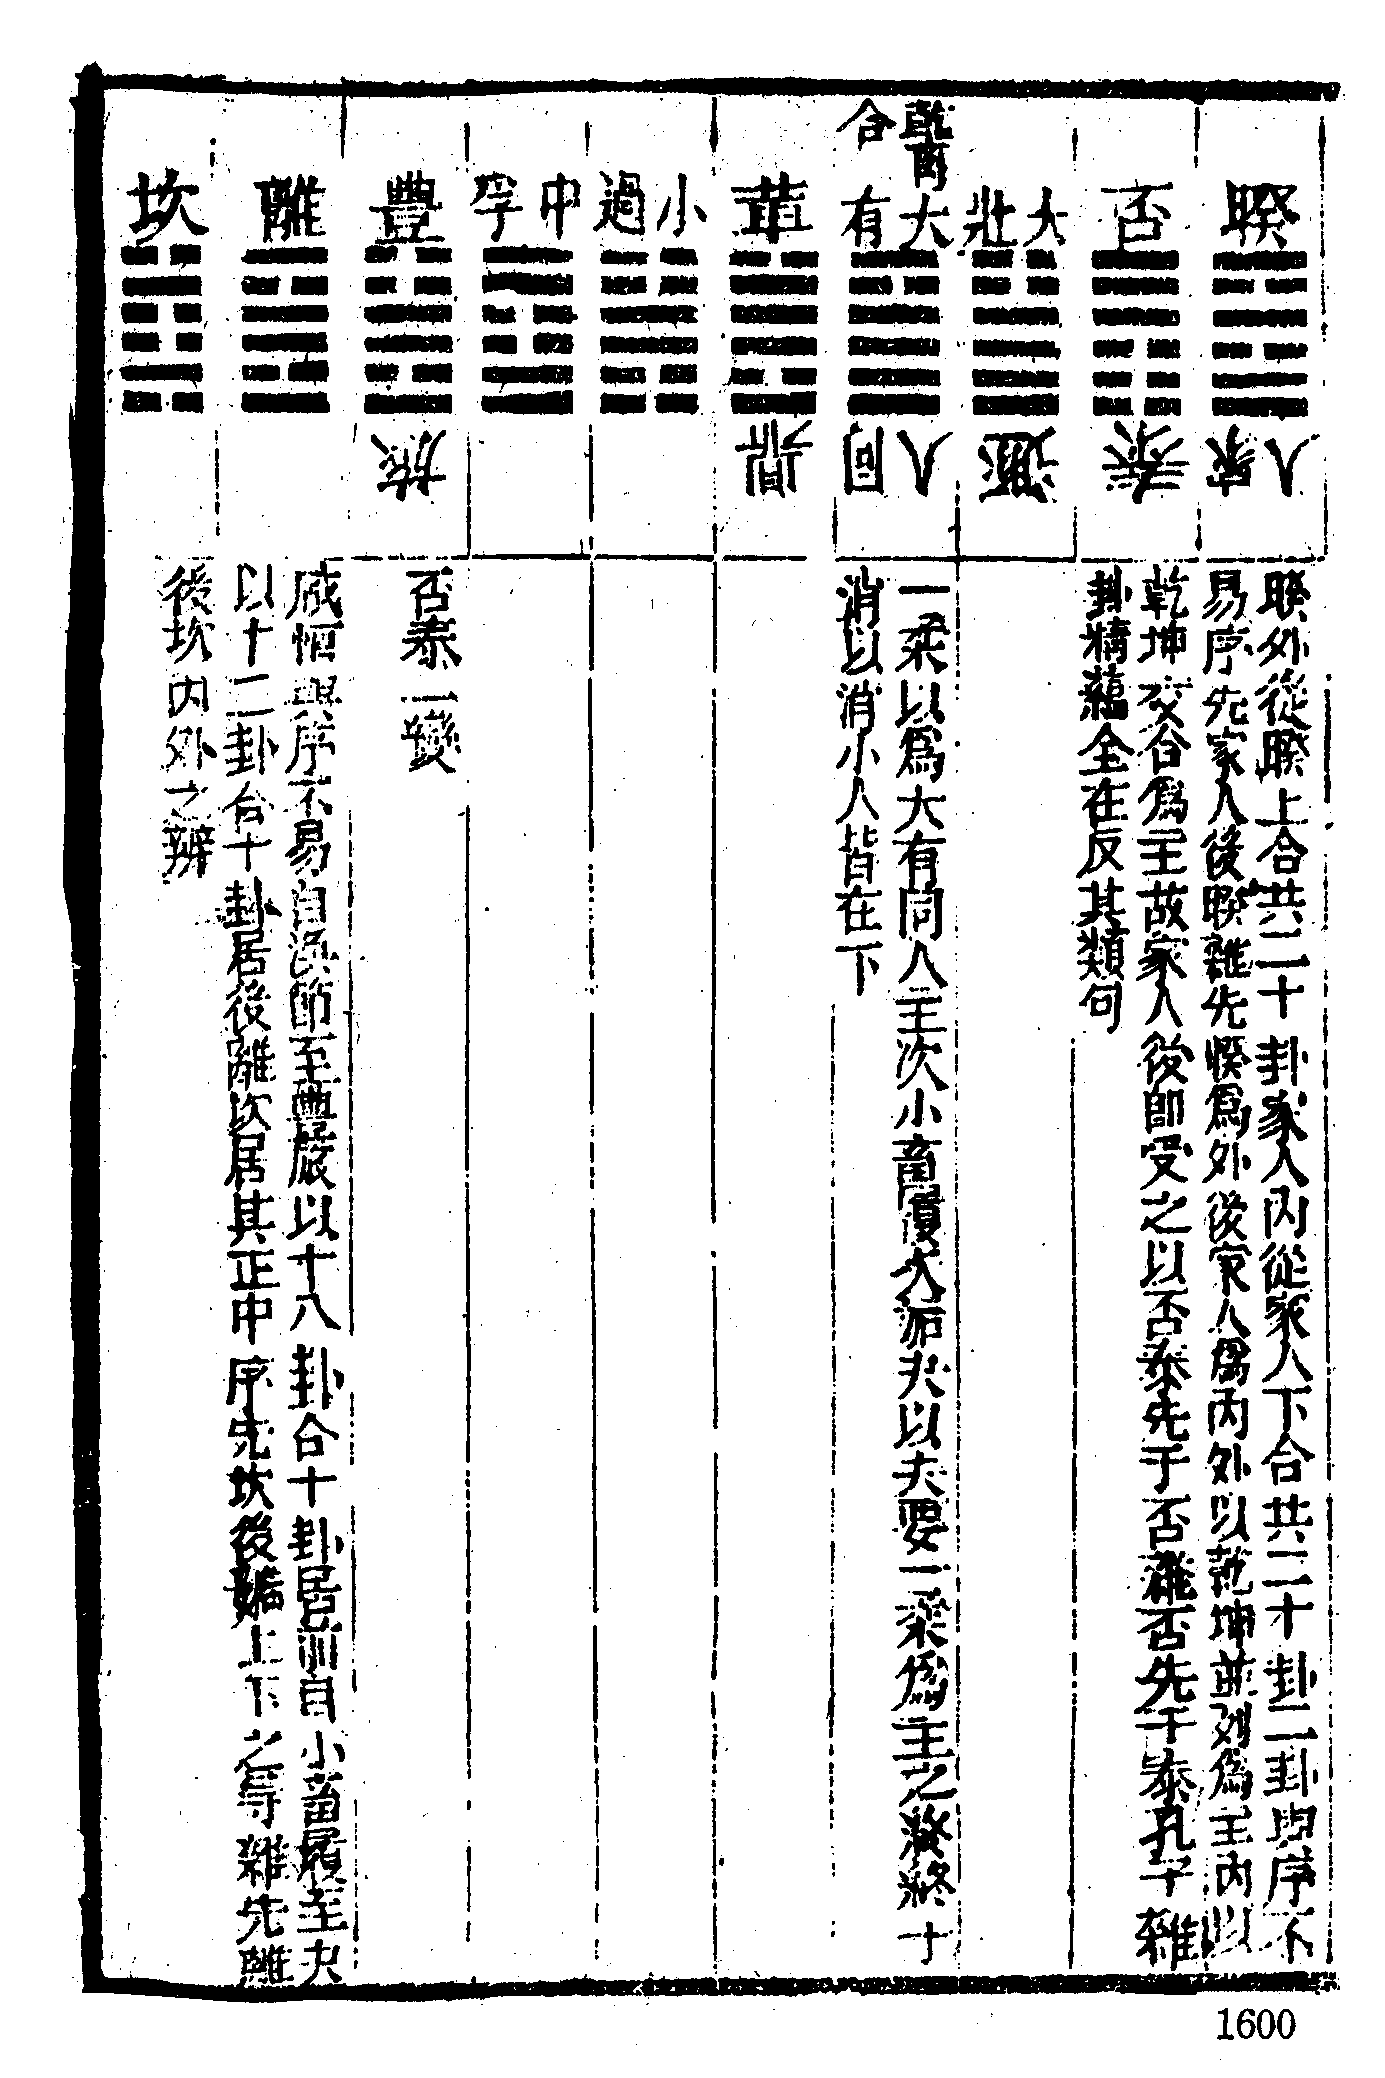 睽
人家
否
泰
大壯
遯
乾南合
大有
人同
革
鼎
小過
中孚
豐
旅
離
坎
睽外從睽上合共二十卦家人內從家人下合共二十卦二卦與序不
易序先家人後睽雜先睽爲外後家人爲內外以乾坤並列爲主內以
乾坤交合爲主故家人後卽受之以否泰先于否雜否先于泰孔子雜
卦精蘊全在反其類句
一柔以爲大有同人主次小畜履大姤夬以夬要一柔爲主之終終于
消以消小人皆在下
否泰一變
咸恒與序不易自渙節至豐旅以十八卦合十卦居前自小畜履至夬
以十二卦合十卦居後離坎居其正中序先坎後離上下之等雜先離
後坎內外之辨
1600